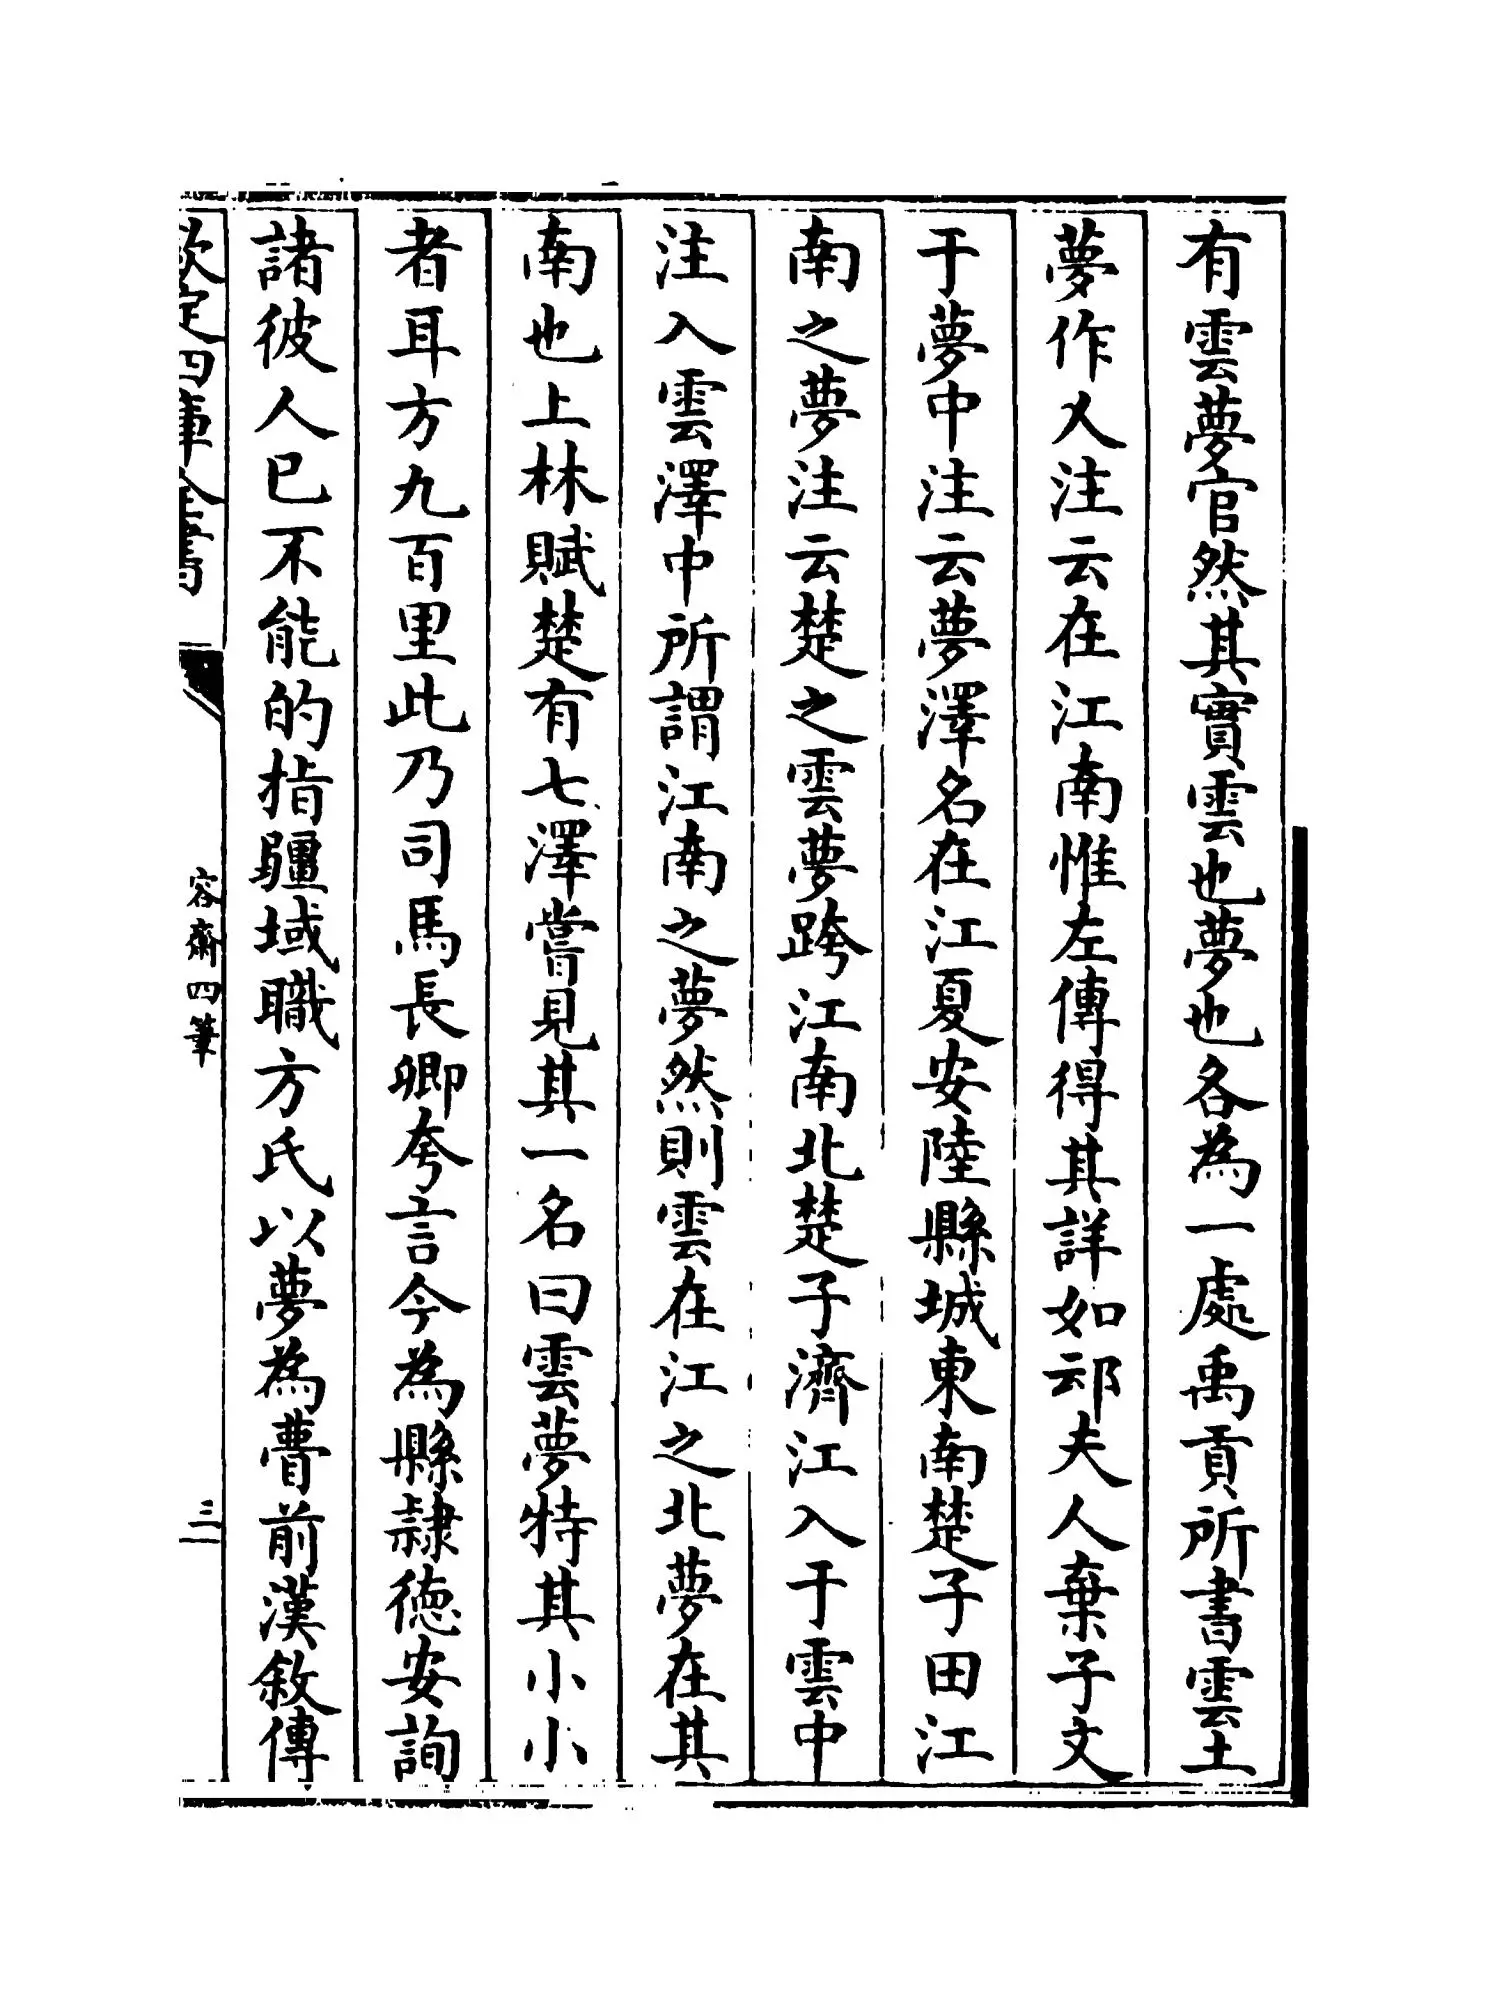 有雲夢官然其實雲也夢也各為一處禹貢所書雲土
夢作乂注云在江南惟左傳得其詳如䢵夫人棄子文
于夢中注云夢澤名在江夏安陸縣城東南楚子田江
南之夢注云楚之雲夢跨江南北楚子濟江入于雲中
注入雲澤中所謂江南之夢然則雲在江之北夢在其
南也上林賦楚有七澤嘗見其一名曰雲夢特其小小
者耳方九百里此乃司馬長卿夸言今為縣隷徳安詢
諸彼人已不能的指疆域職方氏以夢為瞢前漢敘傳
欽定四庫全書
容齋四筆
三